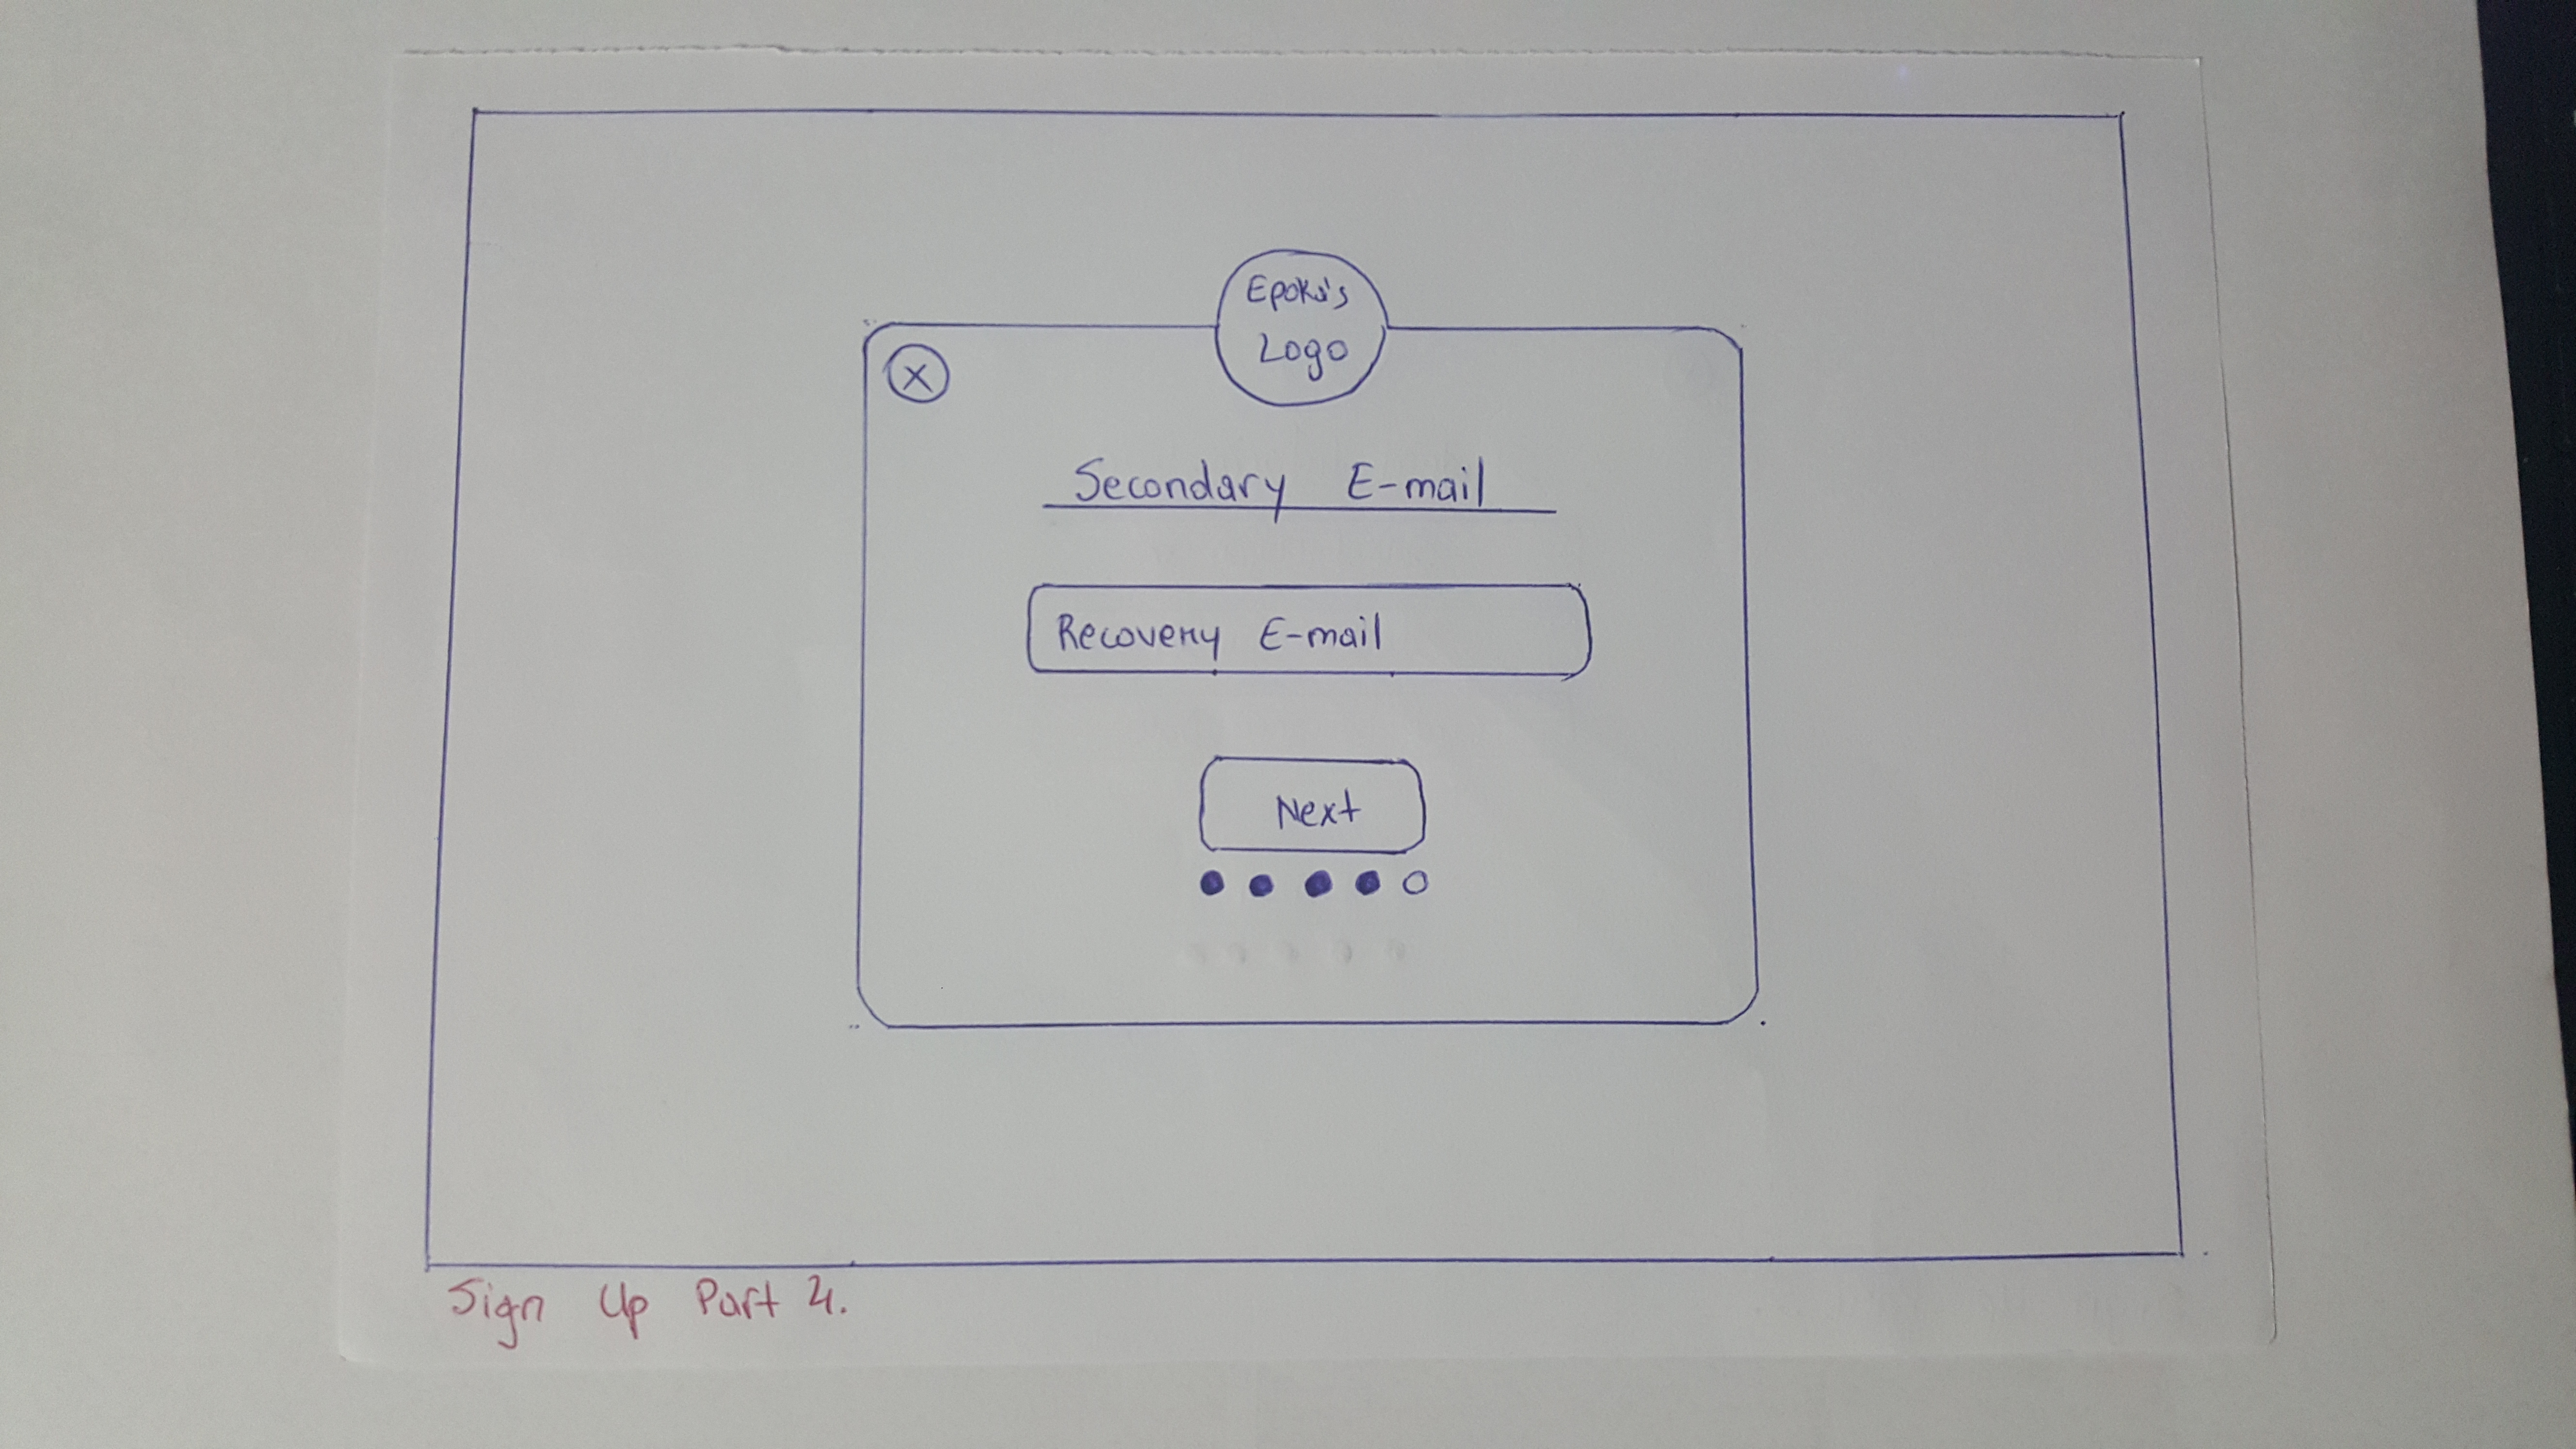 Epoka's
Logo
X
Secondary E-mail
Recovery E-mail
Next
Sign Up Part 4.